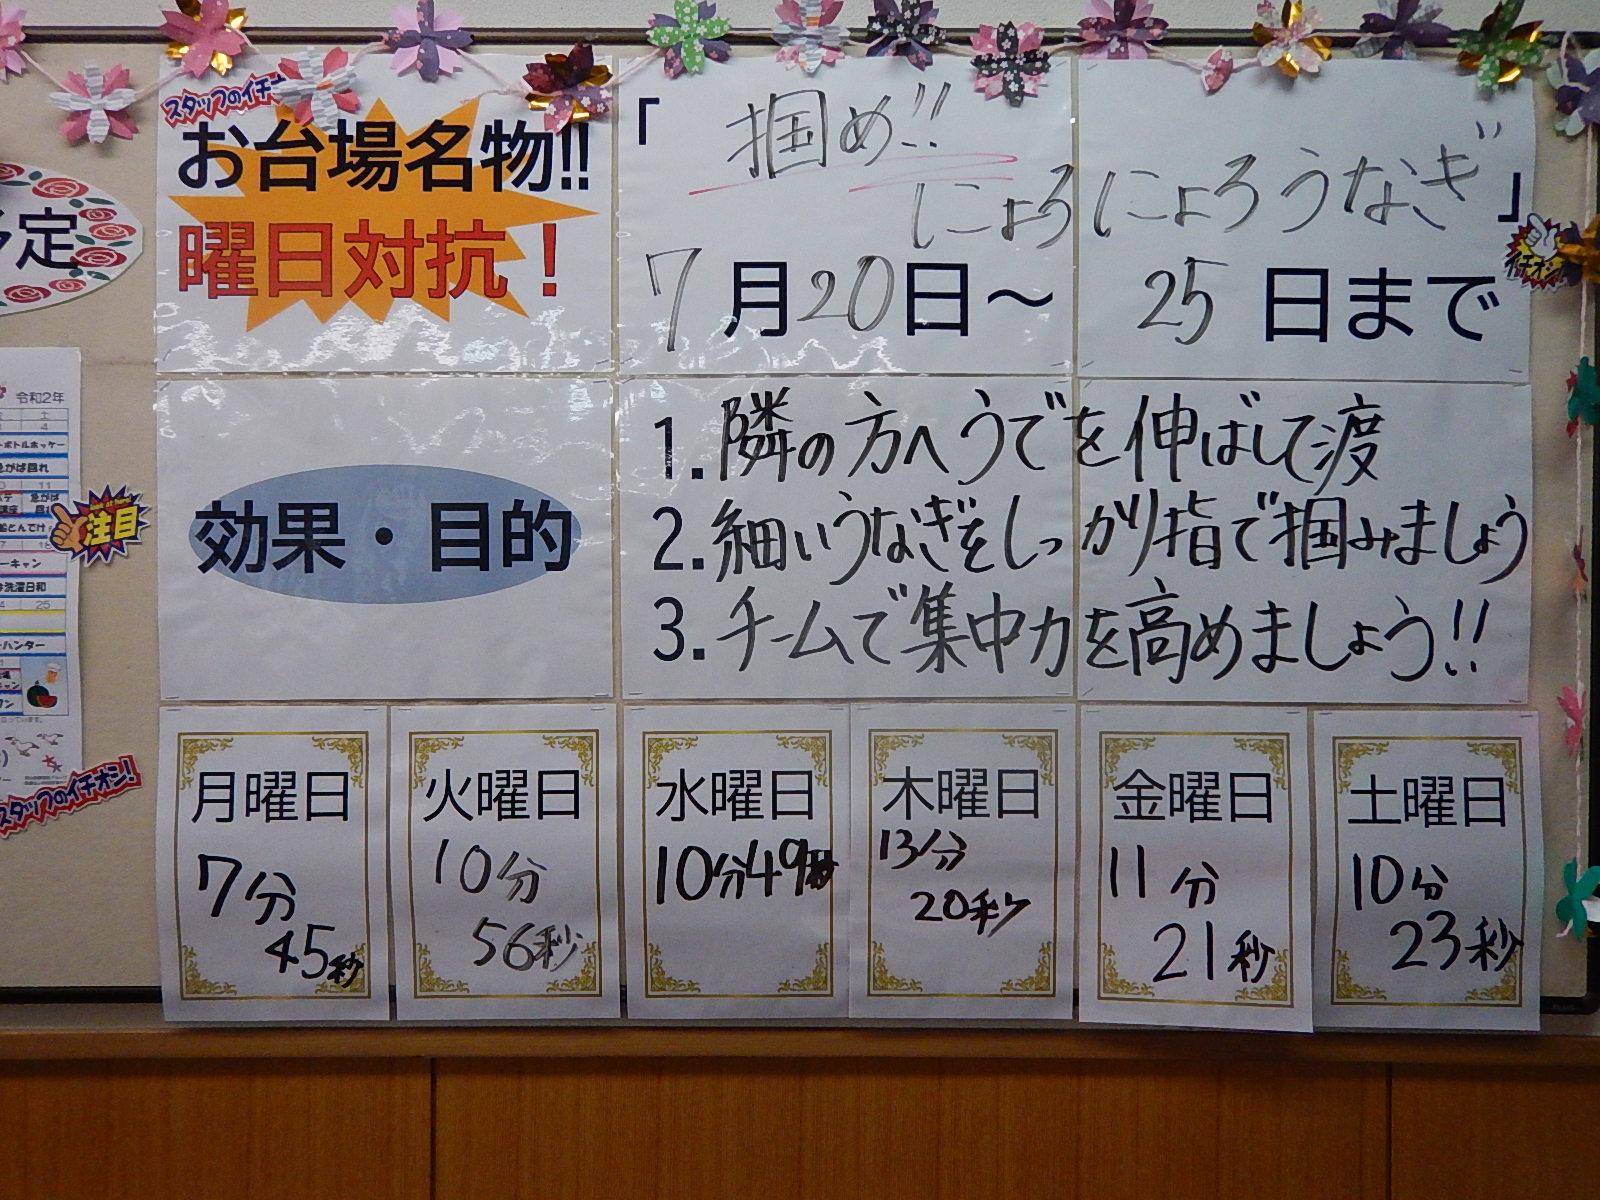 スタッフのイチオ
お台場名物!!
曜日対抗！
「掴め!!
にょろにょろうなぎ」
7月20日～25日まで
イチオシ
予定
効果・目的
1.隣の方へうでを伸ばして渡
2.細いうなぎをしっかり指で掴みましょう
3.チームで集中力を高めましょう!!
令和2年
土
4
ボトルホッケー
急がば回れ
11
急がば
注目
18
洗濯日和
25
ハンター
スタッフのイチオシ!
月曜日
7分
45秒
火曜日
10分
56秒
水曜日
10分49秒
木曜日
13分
20秒
金曜日
11分
21秒
土曜日
10分
23秒